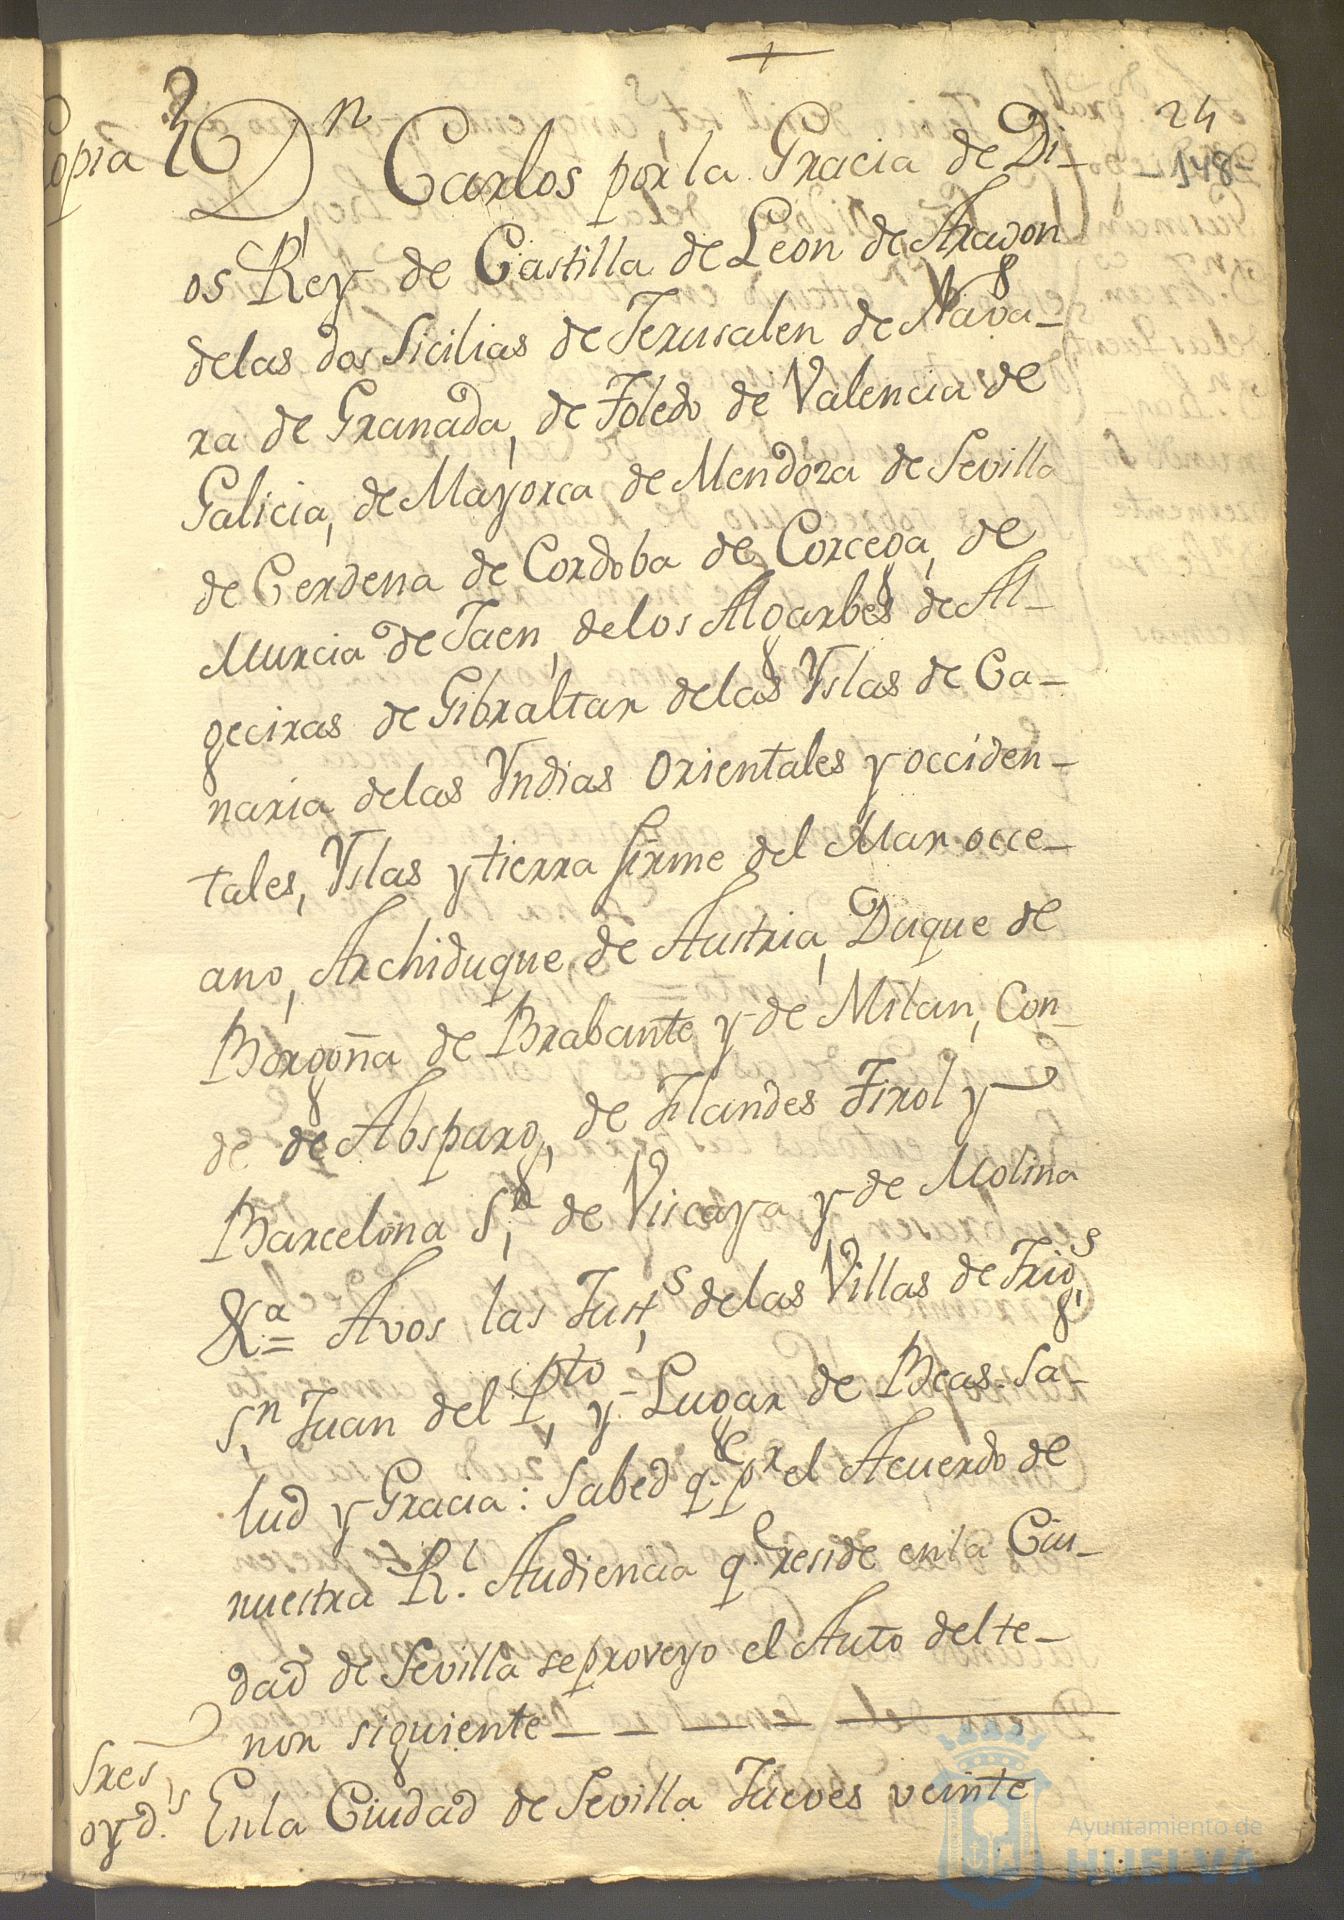 +
24
148=
Copia
Dn Carlos por la Gracia de Di_
os Rey de Castilla de Leon de Aragon
delas dos Sicilias de Jerusalen de Nava_
ra de Granada, de Toledo de Valencia de
Galicia, de Mayorca de Mendoza de Sevilla
de Cerdena de Cordoba de Corcega, de
Murcia de Jaen, delos Algarbes de Al_
geciras de Gibraltar delas Yslas de Ca_
naria delas Yndias Orientales y occiden_
tales, Yslas y tierra firme del Mar occe_
ano, Archiduque de Austria, Duque de
Borgoña de Brabante y de Milan, Con_
de de Absparg, de Flandes Tirol y
Barcelona S,r de Viscaya y de Molina
&a= Avos las Just,s delas Villas de Trig,s
S,n Juan del P,to y Lugar de Beas. Sa_
lud y Gracia: Sabed q.e p.r el Acuerdo de
nuestra R.l Audiencia q.e reside en la Ciu_
dad de Sevilla se proveyo el Auto del te_
nor siguiente_ _ _ _ _
Sres
oyd.s
En la Ciudad de Sevilla Jueves veinte
Ayuntamiento de
HUELVA